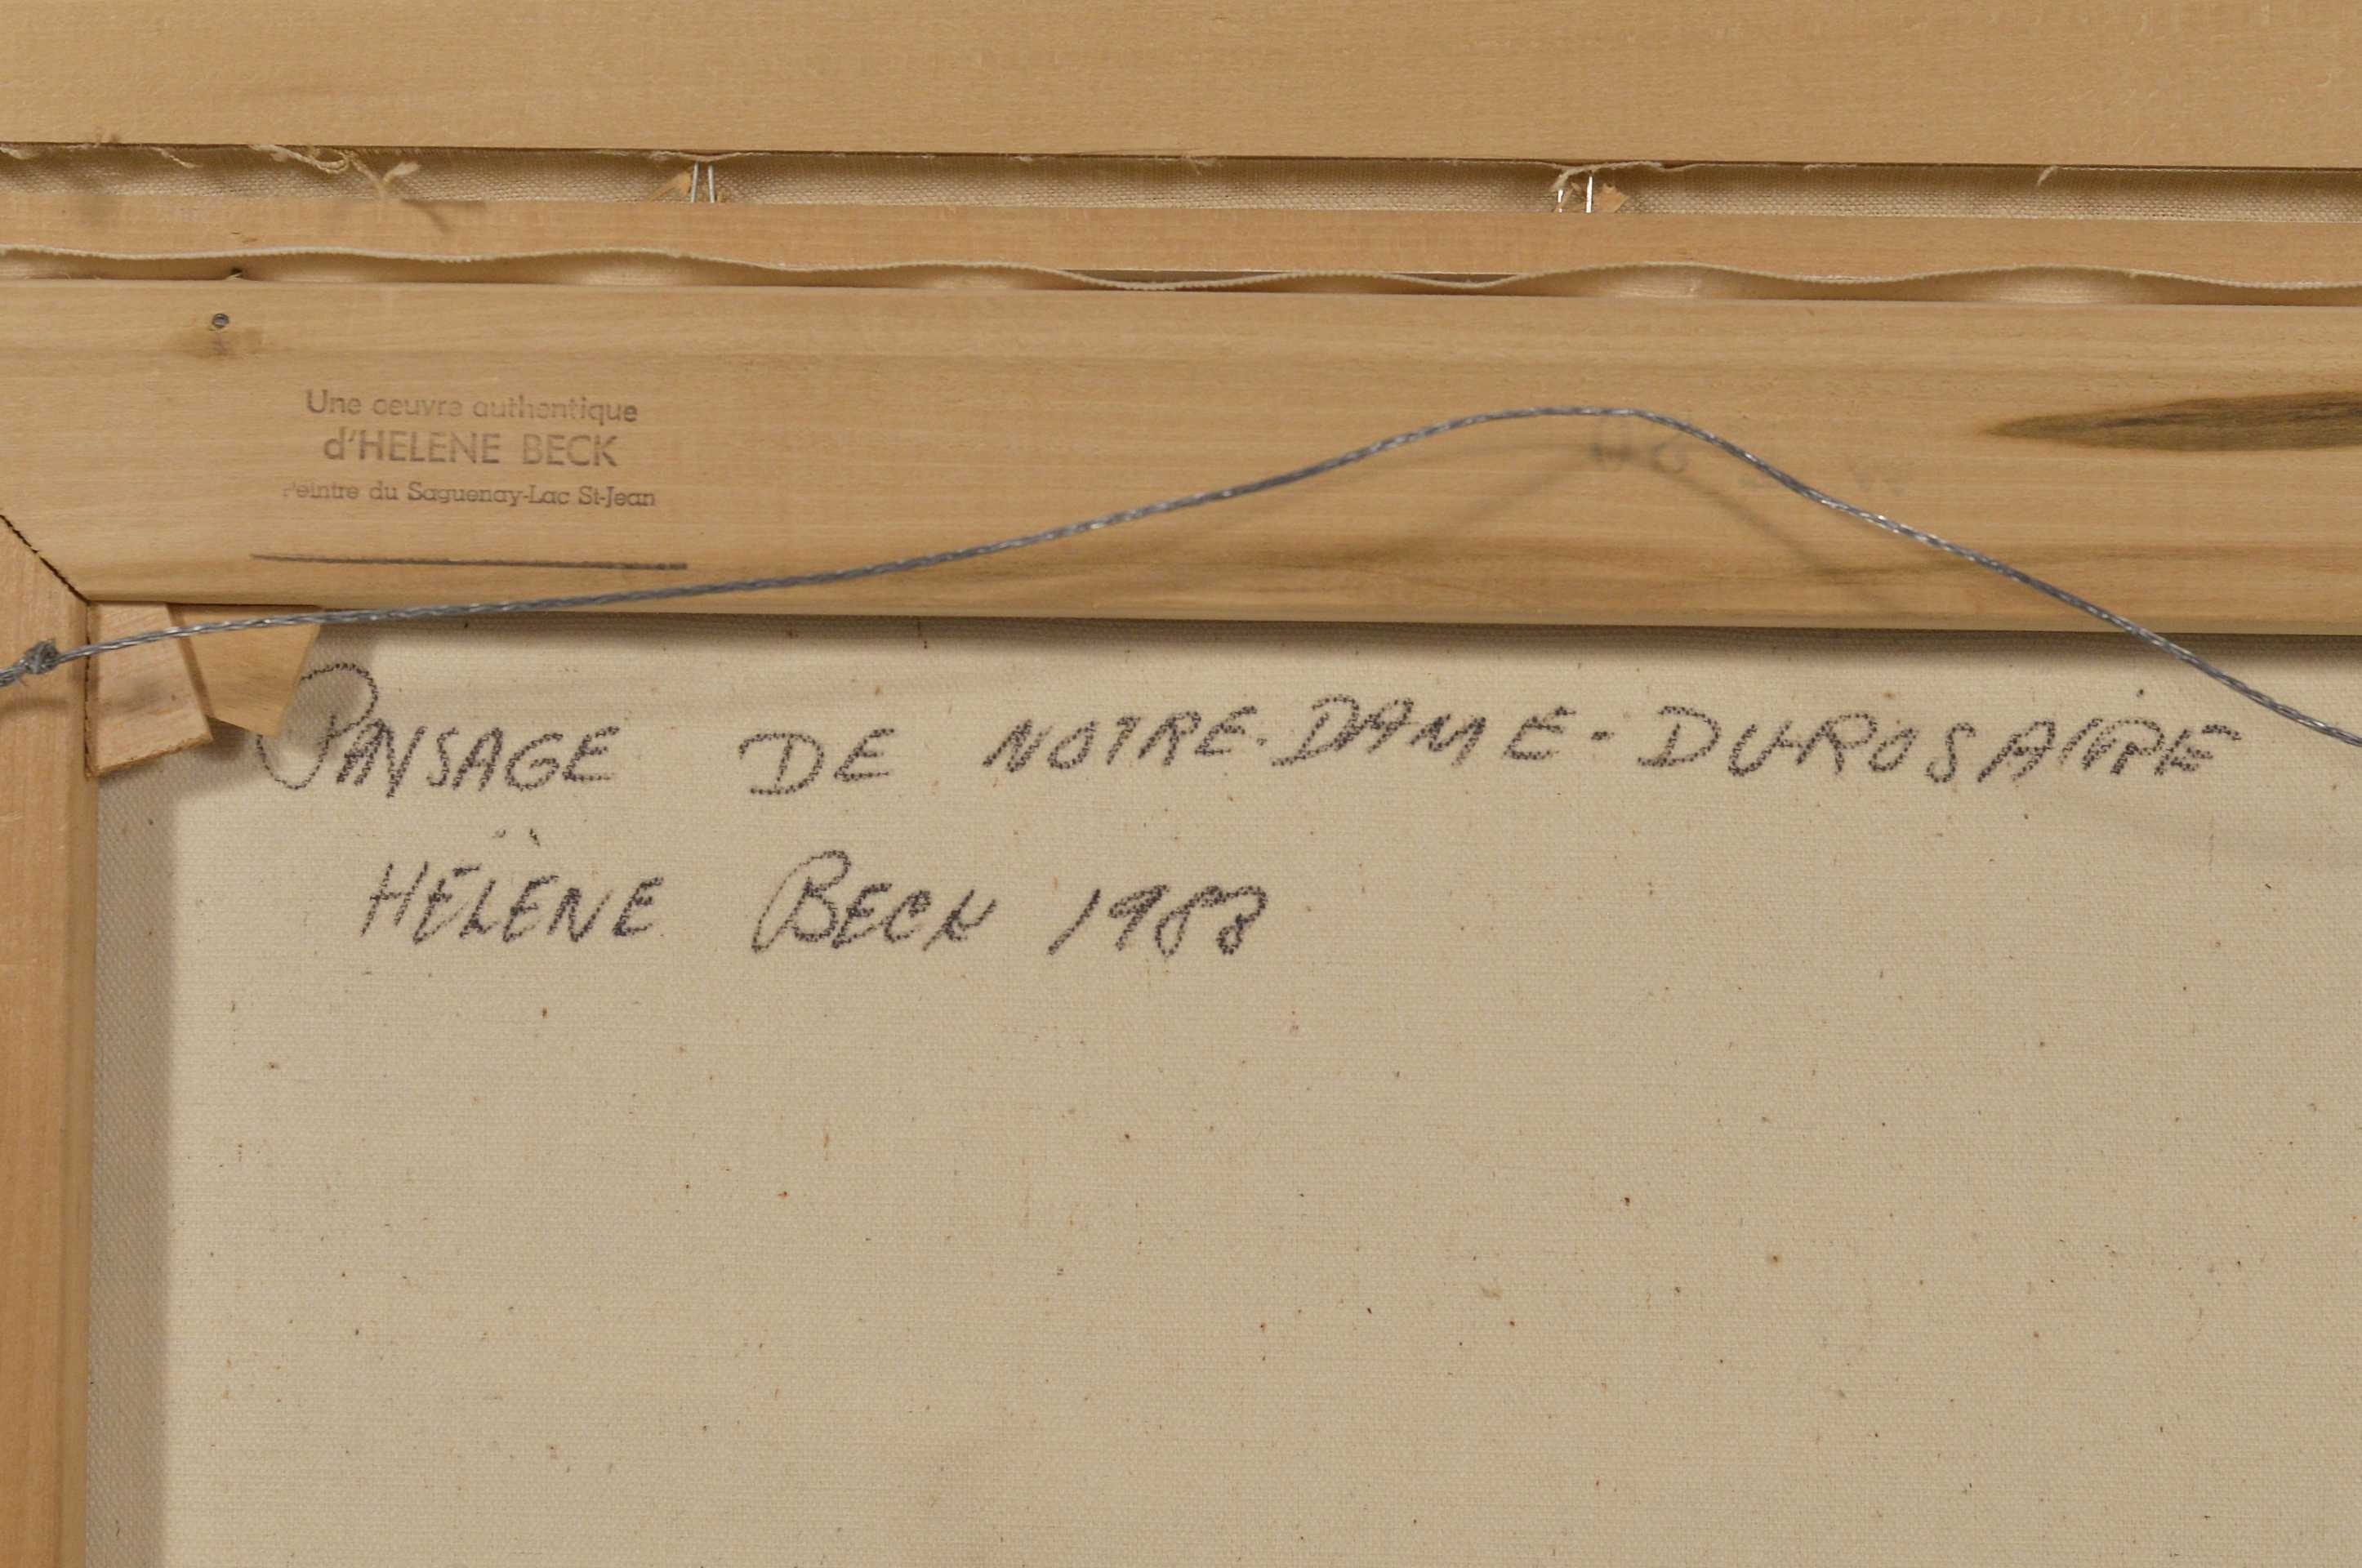 Une oeuvre authentique
d'HELENE BECK
Peintre du Saguenay-Lac St-Jean
PAYSAGE DE NOTRE-DAME-DU-ROSAIRE
HÉLÈNE BECK 1988